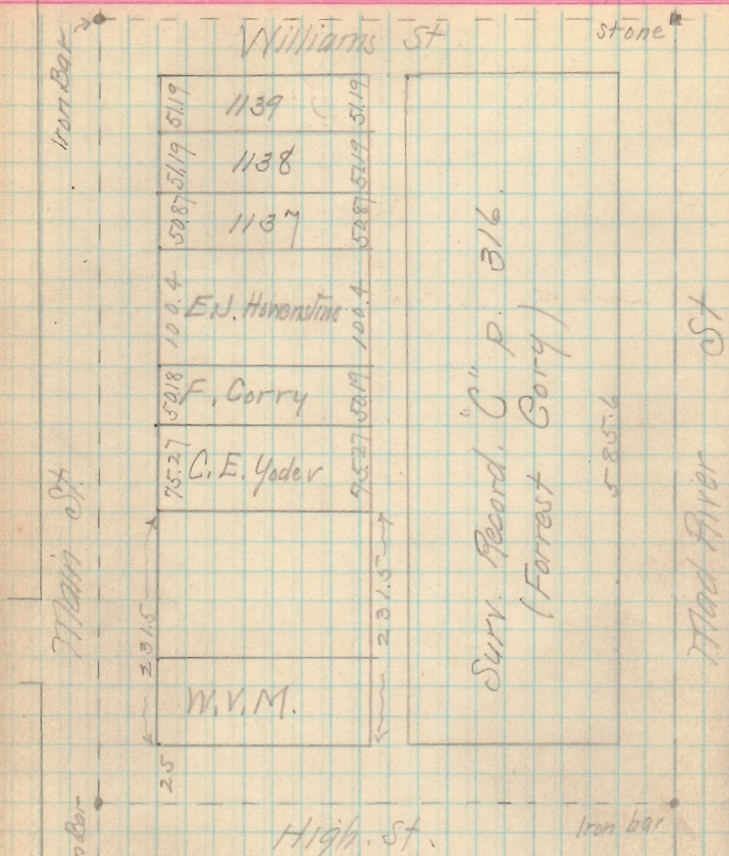 Williams St
stone
Iron Bar
51.19 1139 51.19
51.19 1138 51.19
50.87 1137 50.87
100.4 E.J. Howenstine 100.4
50.18 F. Corry 50.19
75.27 C. E. Yoder 75.27
231.5
231.5
W.V.M.
25
Surv. Record. "C" P. 316.
(Forrest Cory)
585.6
Main St.
Mad River St
High. St.
Iron bar
Bar